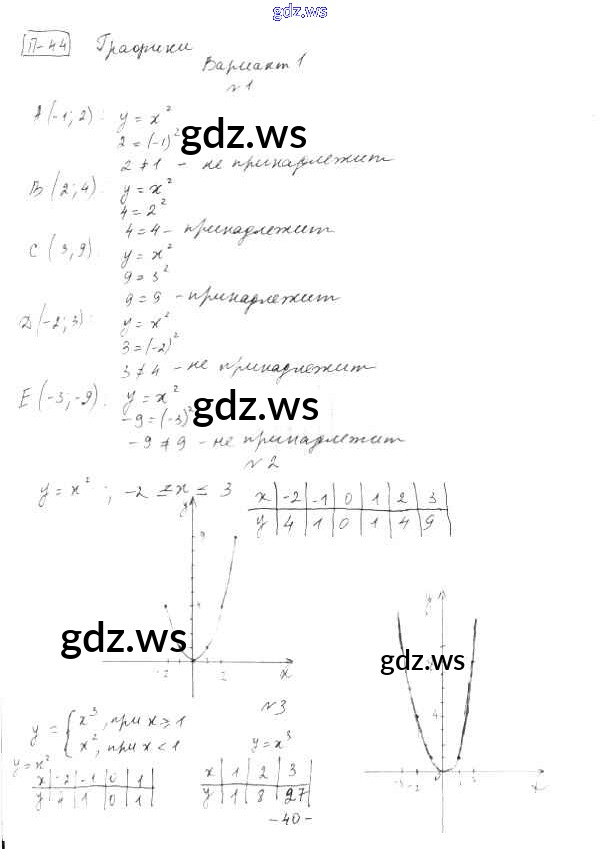 gdz.ws
П-44 Графики
Вариант 1
№1
A(-1; 2): y = x²
2 = (-1)²
gdz.ws
2 ≠ 1 - не принадлежит
B(2; 4): y = x²
4 = 2²
4 = 4 - принадлежит
C(3, 9): y = x²
9 = 3²
9 = 9 - принадлежит
D(-2; 3): y = x²
3 = (-2)²
3 ≠ 4 - не принадлежит
E(-3; -9): y = x²
-9 = (-3)²
gdz.ws
-9 ≠ 9 - не принадлежит
№2
y = x²; -2 ≤ x ≤ 3
x | -2 | -1 | 0 | 1 | 2 | 3
y | 4 | 1 | 0 | 1 | 4 | 9
y
9
4
gdz.ws
-2 2 x
y
gdz.ws
4
-3 -2 0 1 x
№3
y = { x³, при x ≥ 1
x², при x < 1
y = x²
x | -2 | -1 | 0 | 1
y | 4 | 1 | 0 | 1
y = x³
x | 1 | 2 | 3
y | 1 | 8 | 27
-40-